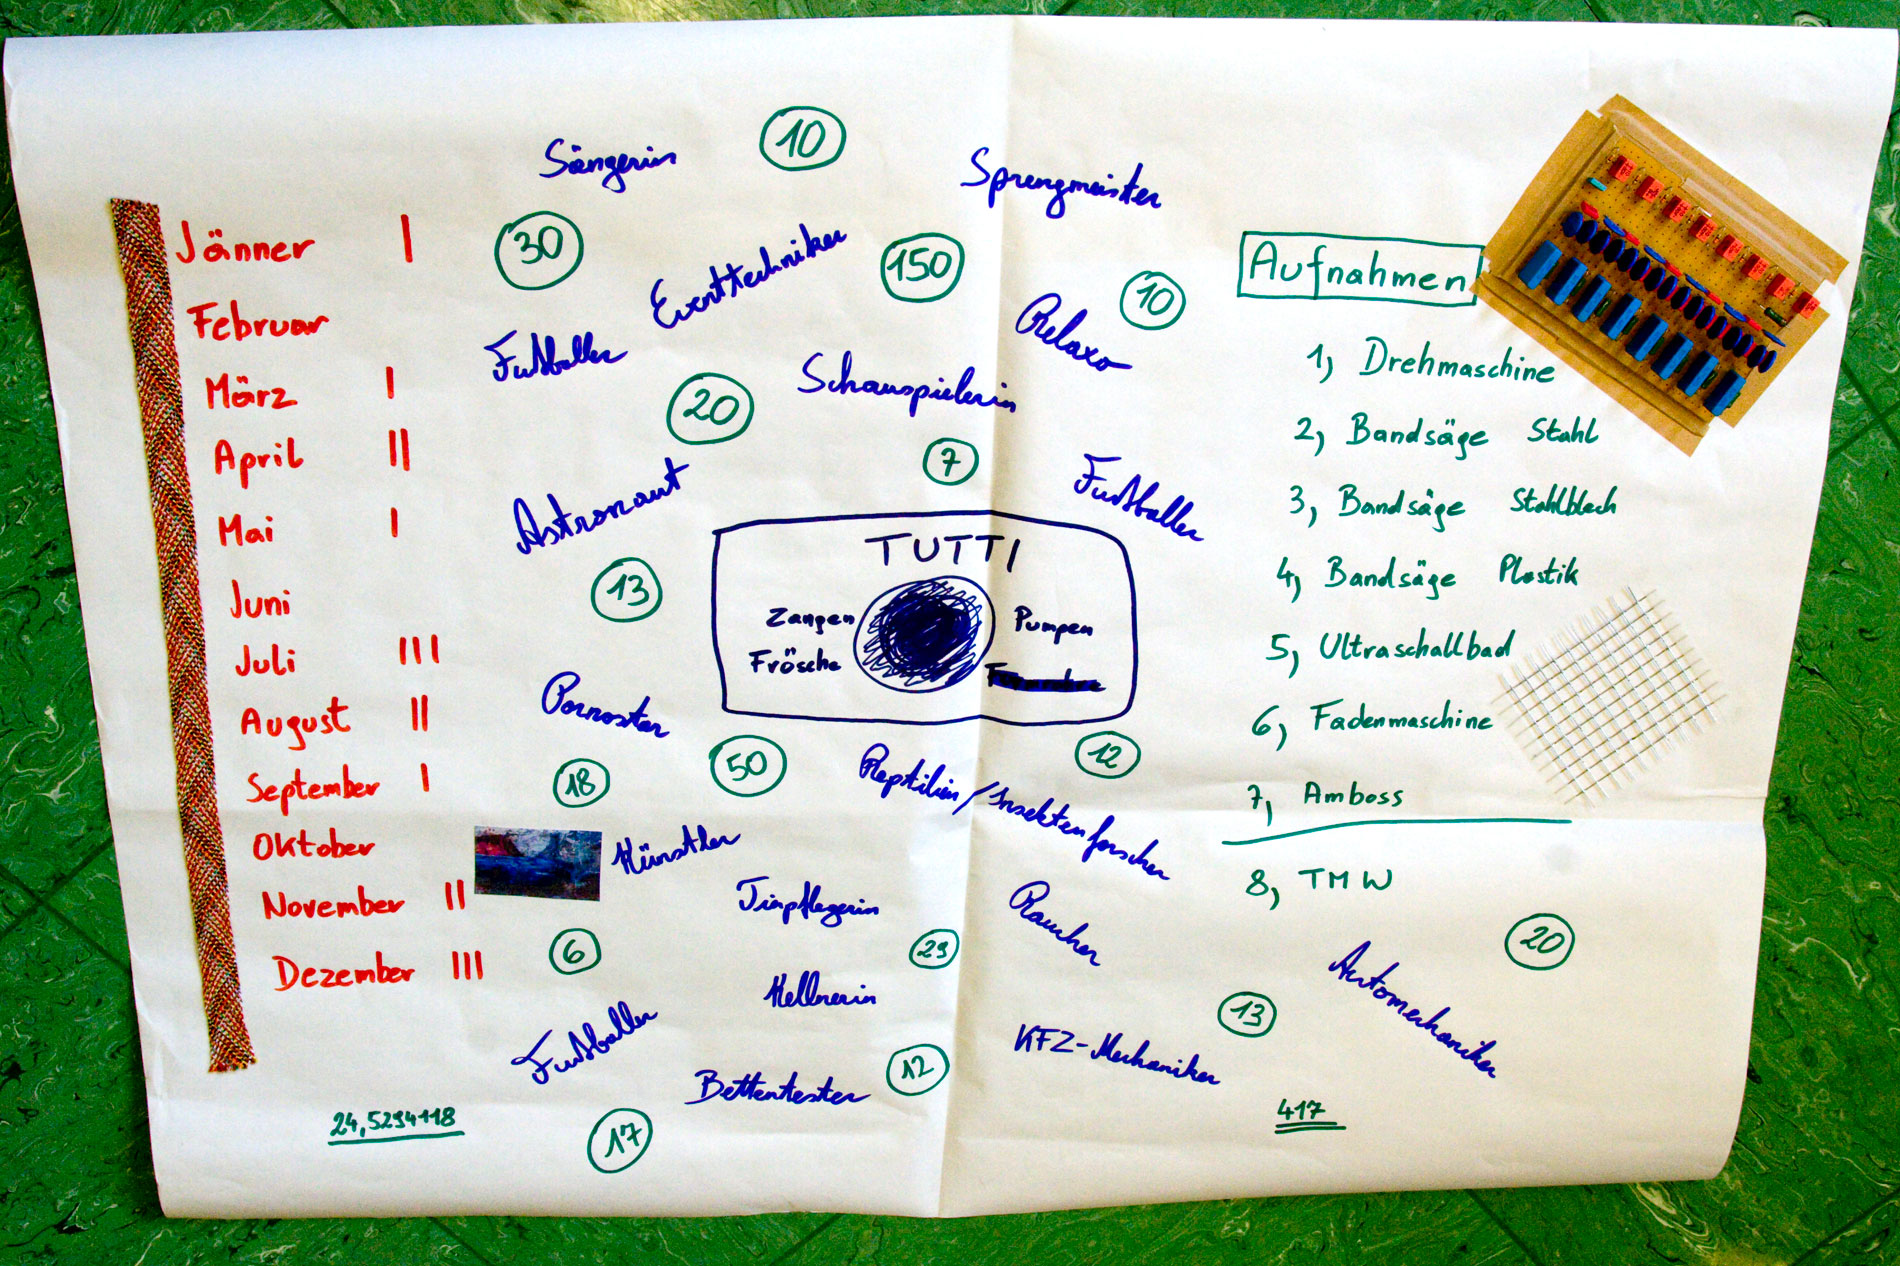 Jänner I
Februar
März I
April II
Mai I
Juni
Juli III
August II
September I
Oktober
November II
Dezember III
24,5294118
Sängerin
10
Sprengmeister
30
Eventtechniker
150
10
Fußballer
Relaxo
20
Schauspielerin
7
Astronaut
Fußballer
13
TUTTI
Zangen
Pumpen
Frösche
Pornostar
50
12
18
Reptilien/Insektenforscher
Künstler
Tierpflegerin
Raucher
6
29
Kellnerin
Fußballer
13
KFZ-Mechaniker
Bettentester
12
17
Aufnahmen
1, Drehmaschine
2, Bandsäge Stahl
3, Bandsäge Stahlblech
4, Bandsäge Plastik
5, Ultraschallbad
6, Fadenmaschine
7, Amboss
8, TMW
20
Automechaniker
417